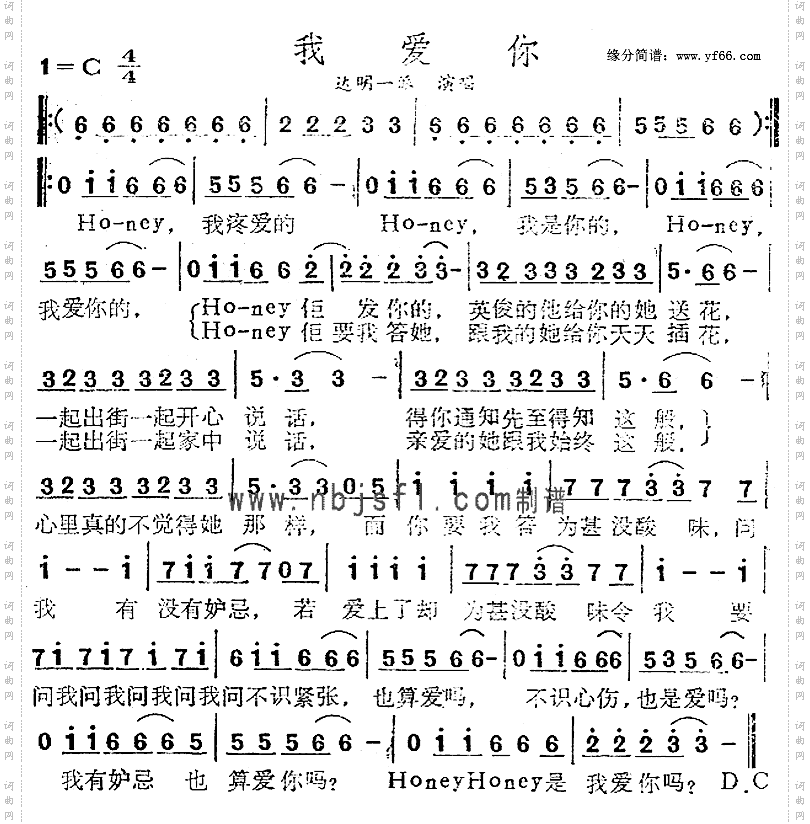 我爱你
缘分简谱：www.yf66.com
1=C 4/4
达明一派 演唱
( 6 6 6 6 6 6 6 6 | 2 2 2 2 3 3 | 6 6 6 6 6 6 6 6 | 5 5 5 5 6 6 )
0 i i 6 6 6 | 5 5 5 6 6 - | 0 i i 6 6 6 | 5 3 5 6 6 - | 0 i i 6 6 6
Ho-ney, 我疼爱的 Ho-ney, 我是你的, Ho-ney,
5 5 5 6 6 - | 0 i i 6 6 2 | 2 2 2 3 3 - | 3 2 3 2 3 3 3 2 3 3 | 5 · 6 6 -
我爱你的, Ho-ney 佢 发你的, 英俊的他给你的她 送花,
Ho-ney 佢要我答她, 跟我的她给你天天 插花,
3 2 3 3 3 2 3 3 | 5 · 3 3 - | 3 2 3 3 3 2 3 3 3 | 5 · 6 6 -
一起出街一起开心 说话, 得你通知先至得知 这般,
一起出街一起家中 说话, 亲爱的她跟我始终 这般,
3 2 3 3 3 3 2 3 3 | 5 · 3 3 0 5 | i i i i | 7 7 7 3 3 7 7
www.nbjsfl.com制谱
心里真的不觉得她 那样, 而你要我答 为甚没酸 味,问
i - - i | 7 i i 7 7 0 7 | i i i i i | 7 7 7 3 3 7 7 | i - - i
我 有 没有妒忌, 若 爱上了却 为甚没酸 味令 我 要
7 i 7 i 7 i 7 i | 6 i i 6 6 6 | 5 5 5 6 6 - | 0 i i 6 6 6 | 5 3 5 6 6 -
问我问我问我问我问不识紧张, 也算爱吗, 不识心伤,也是爱吗?
0 i i 6 6 6 5 | 5 5 5 6 6 - | 0 i i 6 6 6 | 2 2 2 3 3 -
我有妒忌 也 算爱你吗? HoneyHoney是 我爱你吗? D.C
词曲网